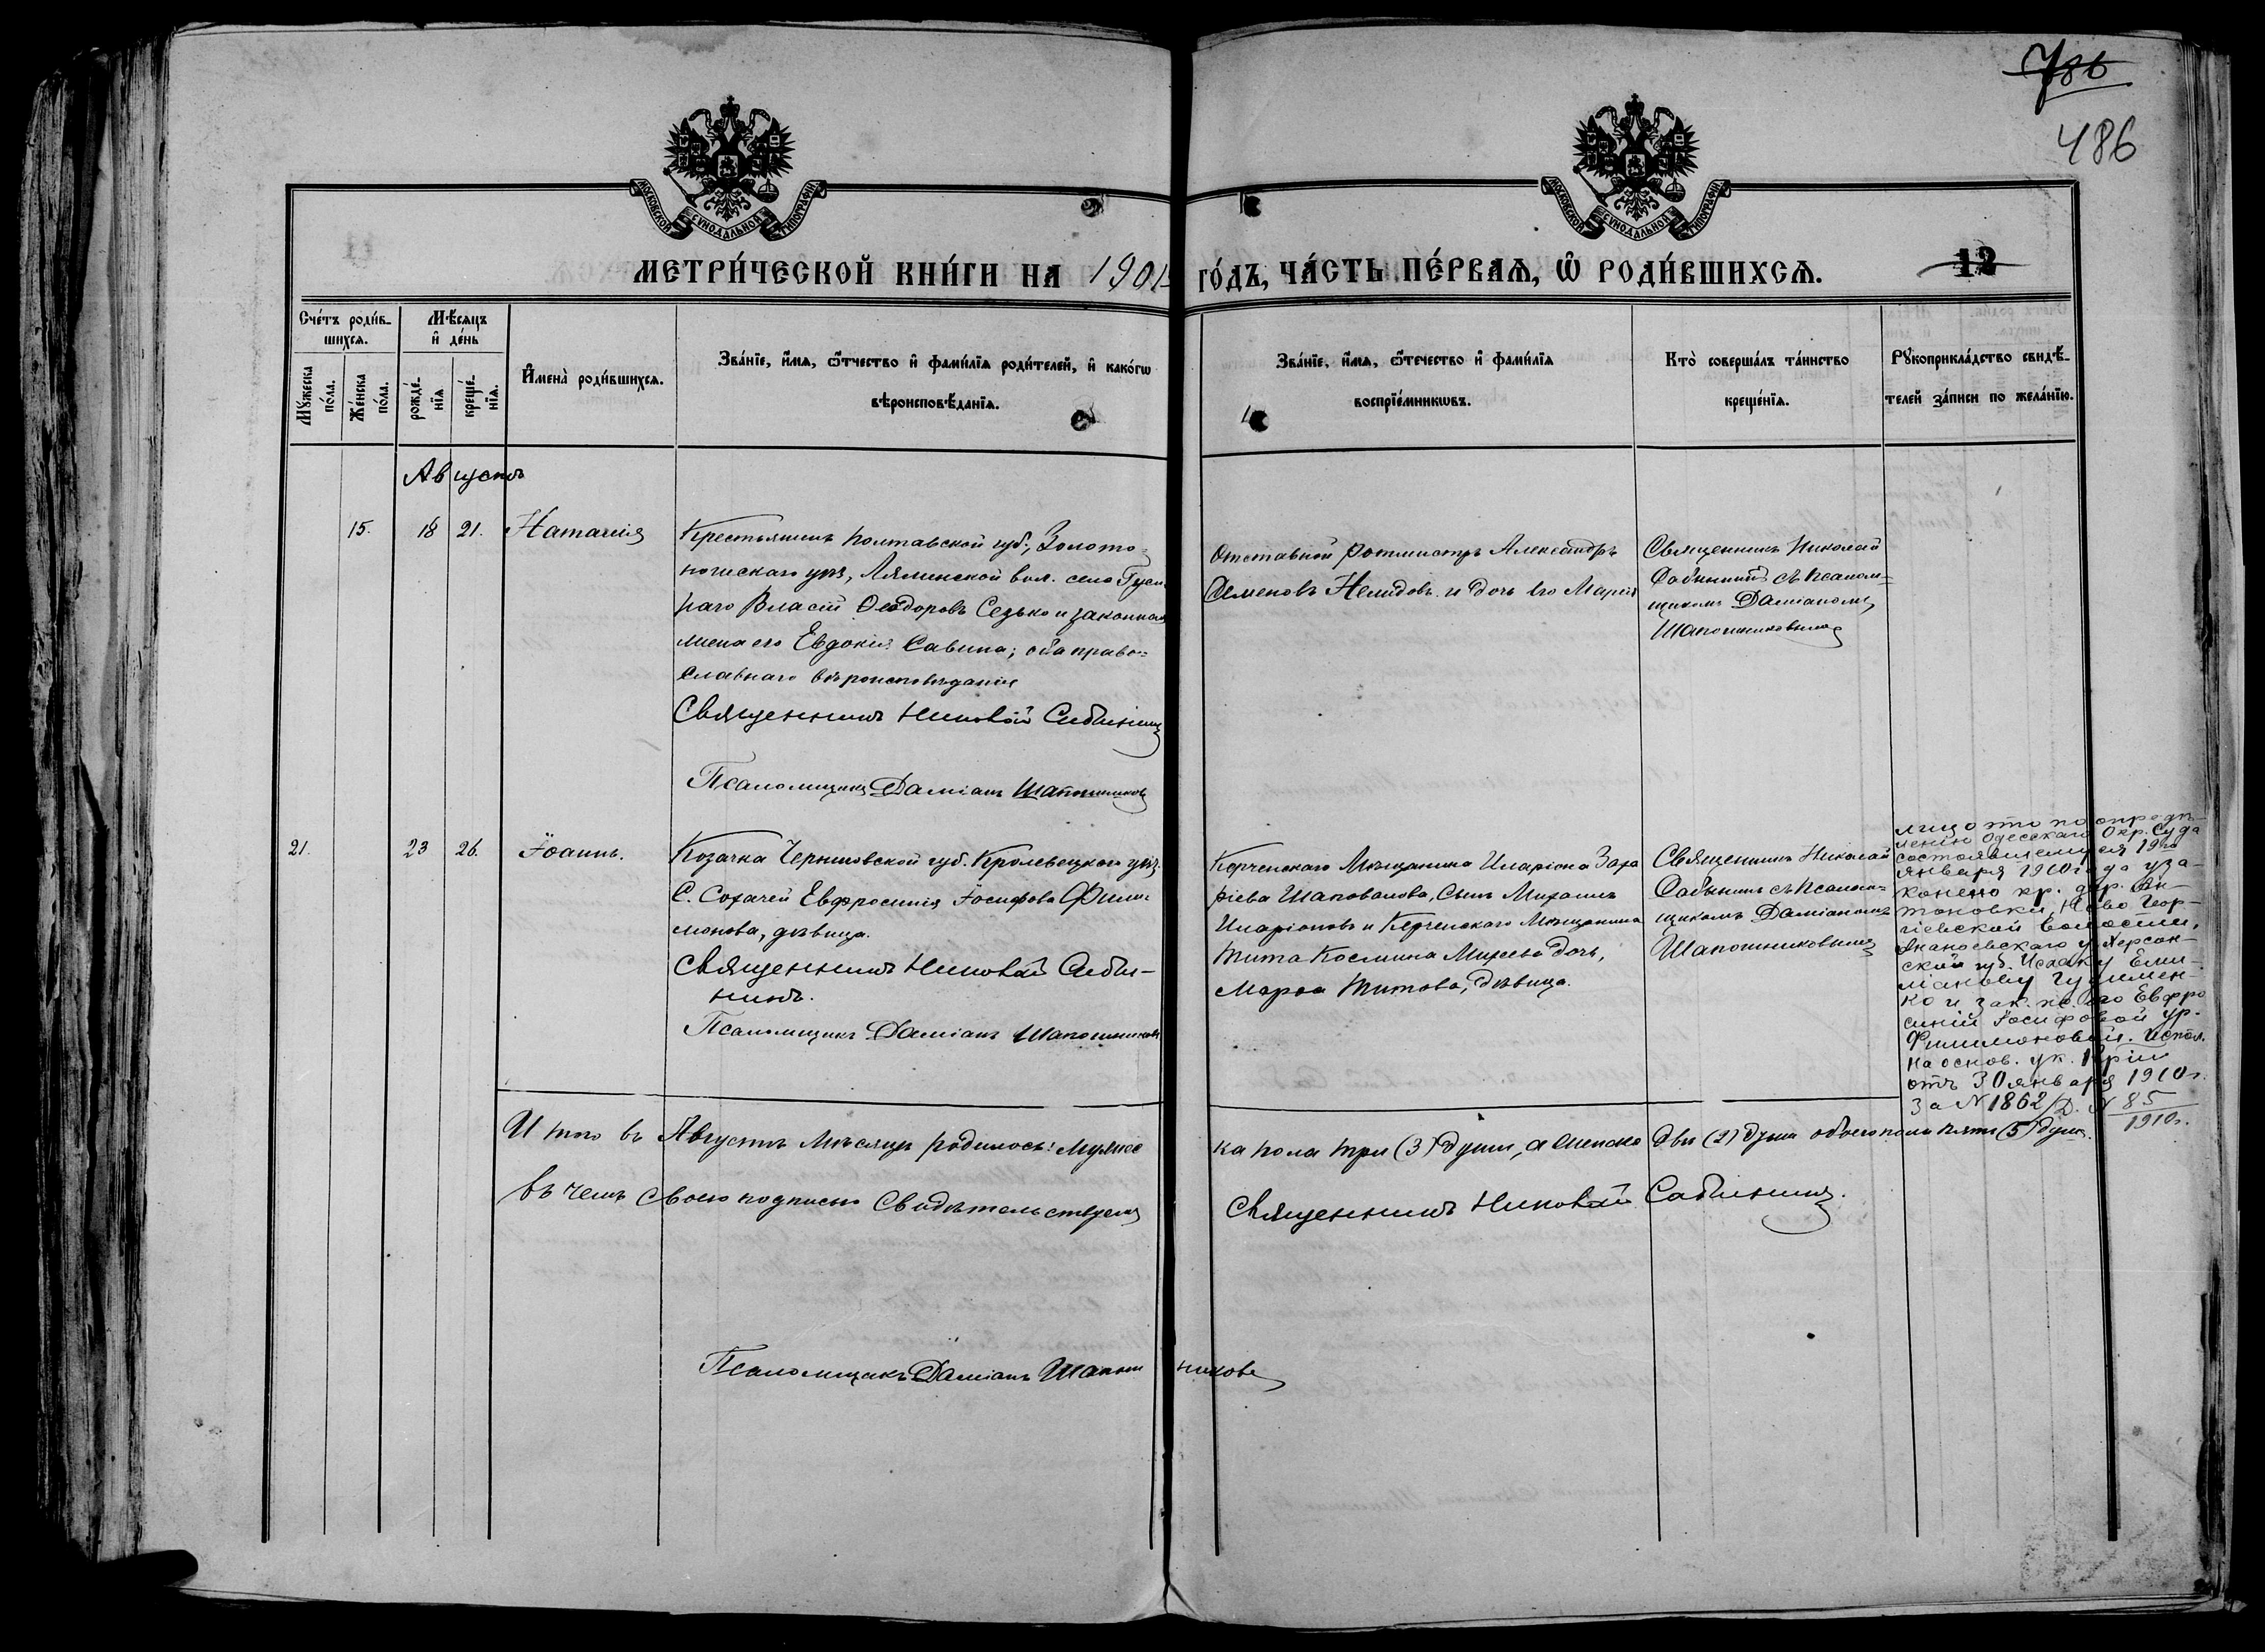 786
486
МОСКОВСКОЙ СѴНОДАЛЬНОЙ ТИПОГРАФІИ
МОСКОВСКОЙ СѴНОДАЛЬНОЙ ТИПОГРАФІИ
МЕТРИ́ЧЕСКОЙ КНИ́ГИ НА 1901 ГО́ДЪ, ЧА́СТЬ ПЕ́РВАѦ, Ѡ҆ РОДИ́ВШИХСѦ.
12
Сче́тъ роди́в-
шихсѧ.
Му́жеска
по́ла.
Же́нска
по́ла.
Мѣ́сѧцъ
и҆ де́нь
рожде́-
нїѧ
креще́-
нїѧ.
И҆мена̀ роди́вшихсѧ.
Зва́нїе, и҆́мѧ, ѻ҆́тчество и҆ фами́лїѧ роди́телей, и҆ како́гѡ
вѣроисповѣ́данїѧ.
Зва́нїе, и҆́мѧ, ѻ҆те́чество и҆ фами́лїѧ
воспрїе́мникѡвъ.
Кто̀ соверша́лъ та́инство
креще́нїѧ.
Рꙋкоприкла́дство свидѣ́-
телей за́писи по жела́нїю.
Августъ
15. 18 21. Наталія
Крестьянинъ Полтавской губ., Золото-
ношскаго уѣз, Лялинской вол. село
Власій Ѳеодоровъ Седько и законная
жена его Евдокія Савина; оба право-
славнаго вѣроисповѣданія
Священникъ Николай Сабининъ
Псаломщикъ Даміанъ Шапошниковъ
Отставной Ротмистръ Александръ
Семеновъ Нелидовъ и дочь его Марія
Священникъ Николай
Сабининъ съ Псалом-
щикомъ Даміаномъ
Шапошниковымъ
21. 23 26. Іоаннъ.
Козачка Черниговской губ. Кролевецкаго уѣз.
С. Сохачей Евфросинія Іосифова Фили-
монова, дѣвица.
Священникъ Николай Саби-
нинъ.
Псаломщикъ Даміанъ Шапошниковъ
Керченскаго Мѣщанина Иларіона Заха
ріева Шаповалова, Сынъ Михаилъ
Иларіоновъ и Керченскаго Мѣщанина
Тита Космина Михеева Дочь,
Марѳа Титова, Дѣвица.
Священникъ Николай
Сабининъ съ Псалом-
щикомъ Даміаномъ
Шапошниковымъ
лицо это по опредѣ-
ленію Одесскаго Окр. Суда
состоявшемуся 19го
января 1910 года уза-
конено кр. дер. Ан-
тоновки, Ново Геор-
гіевской волости,
Ананьевскаго у. Херсон-
ской губ. Исааку Еми-
ліанову
ко и зак. ж. его Евфро
синіи Іосифовой ур.
Филимоновой. Испол.
на основ. ук. Кріи
отъ 30 января 1910 г.
За N 1862/Д. N 85
1910 г.
Итого въ Августѣ Мѣсяцѣ родилось: Мужес
ка пола три (3) Души, а женска двѣ (2) Души обоего пола Пять (5) Душъ.
Въ чемъ Своею подписью Свидѣтельствуемъ
Священникъ Николай Сабининъ.
Псаломщикъ Даміанъ Шапошниковъ